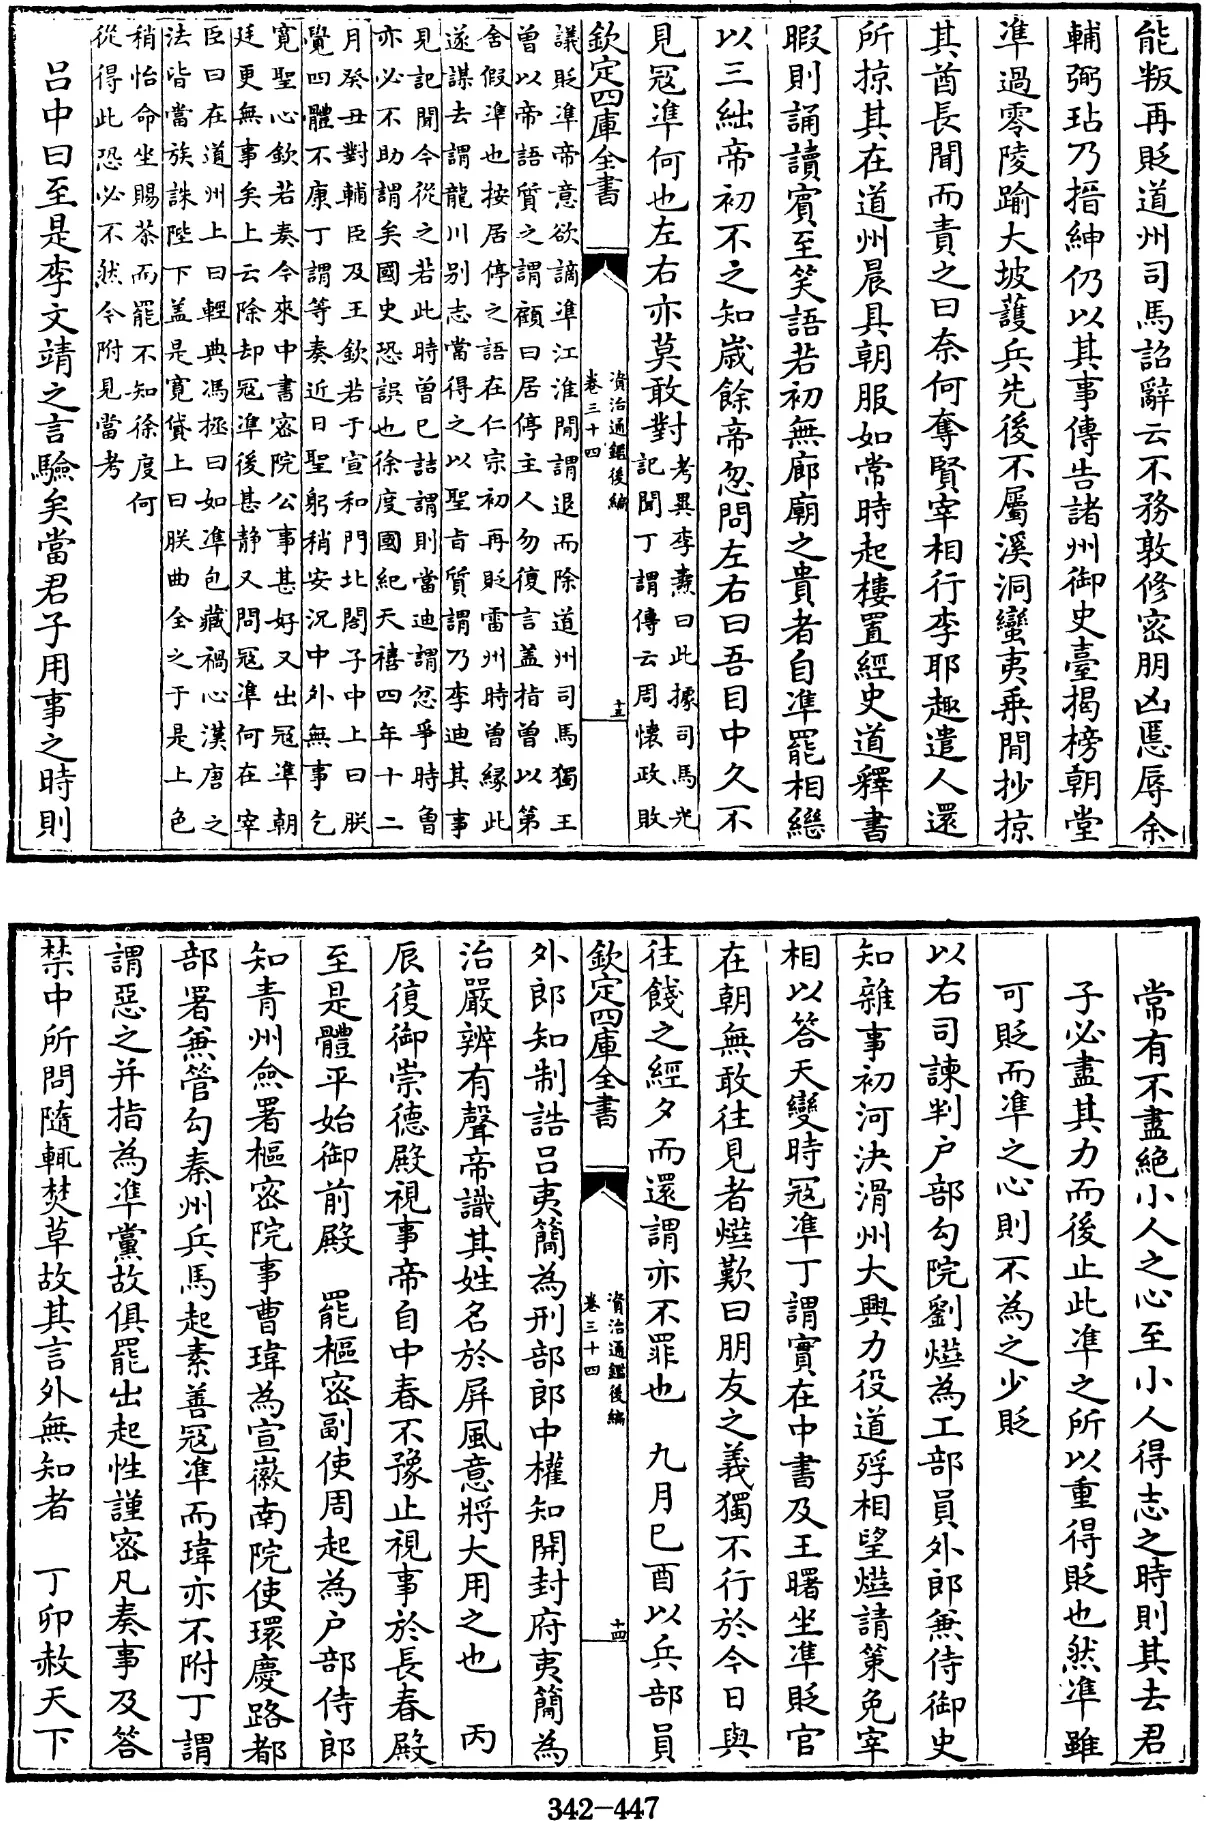 能叛再貶道州司馬詔辭云不務敦修密朋凶慝辱余
輔弼玷乃搢紳仍以其事傳告諸州御史臺揭榜朝堂
凖過零陵踰大坡䕶兵先後不屬溪洞蠻夷乗間抄掠
其酋長聞而責之曰奈何奪賢宰相行李耶趣遣人還
所掠其在道州晨具朝服如常時起樓置經史道釋書
暇則誦讀賓至笑語若初無廊廟之貴者自凖罷相繼
以三絀帝初不之知嵗餘帝忽問左右曰吾目中久不
見冦凖何也左右亦莫敢對考異李燾曰此據司馬光
記聞丁謂傳云周懷政敗
欽定四庫全書
資治通鑑後編
卷三十四
十三
議貶凖帝意欲謫凖江淮間謂退而除道州司馬獨王
曾以帝語質之謂顧曰居停主人勿復言盖指曾以第
舍假凖也按居停之語在仁宗初再貶雷州時曾縁此
遂謀去謂龍川别志當得之以聖旨質謂乃李迪其事
見記聞今從之若此時曾已詰謂則當迪謂忿爭時曾
亦必不助謂矣國史恐誤也徐度國紀天禧四年十二
月癸丑對輔臣及王欽若于宣和門北閤子中上曰朕
覺四體不康丁謂等奏近日聖躬稍安況中外無事乞
寛聖心欽若奏今來中書密院公事甚好又出冦凖朝
廷更無事矣上云除却冦凖後甚静又問冦凖何在宰
臣曰在道州上曰輕典馮拯曰如凖包藏禍心漢唐之
法皆當族誅陛下盖是寛貸上曰朕曲全之于是上色
稍怡命坐賜茶而罷不知徐度何
從得此恐必不然今附見當考
吕中曰至是李文靖之言驗矣當君子用事之時則
常有不盡絶小人之心至小人得志之時則其去君
子必盡其力而後止此凖之所以重得貶也然凖雖
可貶而凖之心則不為之少貶
以右司諫判户部勾院劉燁為工部員外郎兼侍御史
知雜事初河決滑州大興力役道殍相望燁請策免宰
相以答天變時冦凖丁謂實在中書及王曙坐凖貶官
在朝無敢往見者燁歎曰朋友之義獨不行於今日與
往餞之經夕而還謂亦不罪也　九月己酉以兵部員
欽定四庫全書
資治通鑑後編
卷三十四
十四
外郎知制誥吕夷簡為刑部郎中權知開封府夷簡為
治嚴辨有聲帝識其姓名於屏風意將大用之也　丙
辰復御崇德殿視事帝自中春不豫止視事於長春殿
至是體平始御前殿　罷樞密副使周起為户部侍郎
知青州僉署樞密院事曹瑋為宣徽南院使環慶路都
部署兼管勾秦州兵馬起素善冦凖而瑋亦不附丁謂
謂惡之并指為凖黨故俱罷出起性謹密凡奏事及答
禁中所問隨輒焚草故其言外無知者　丁卯赦天下
342-447